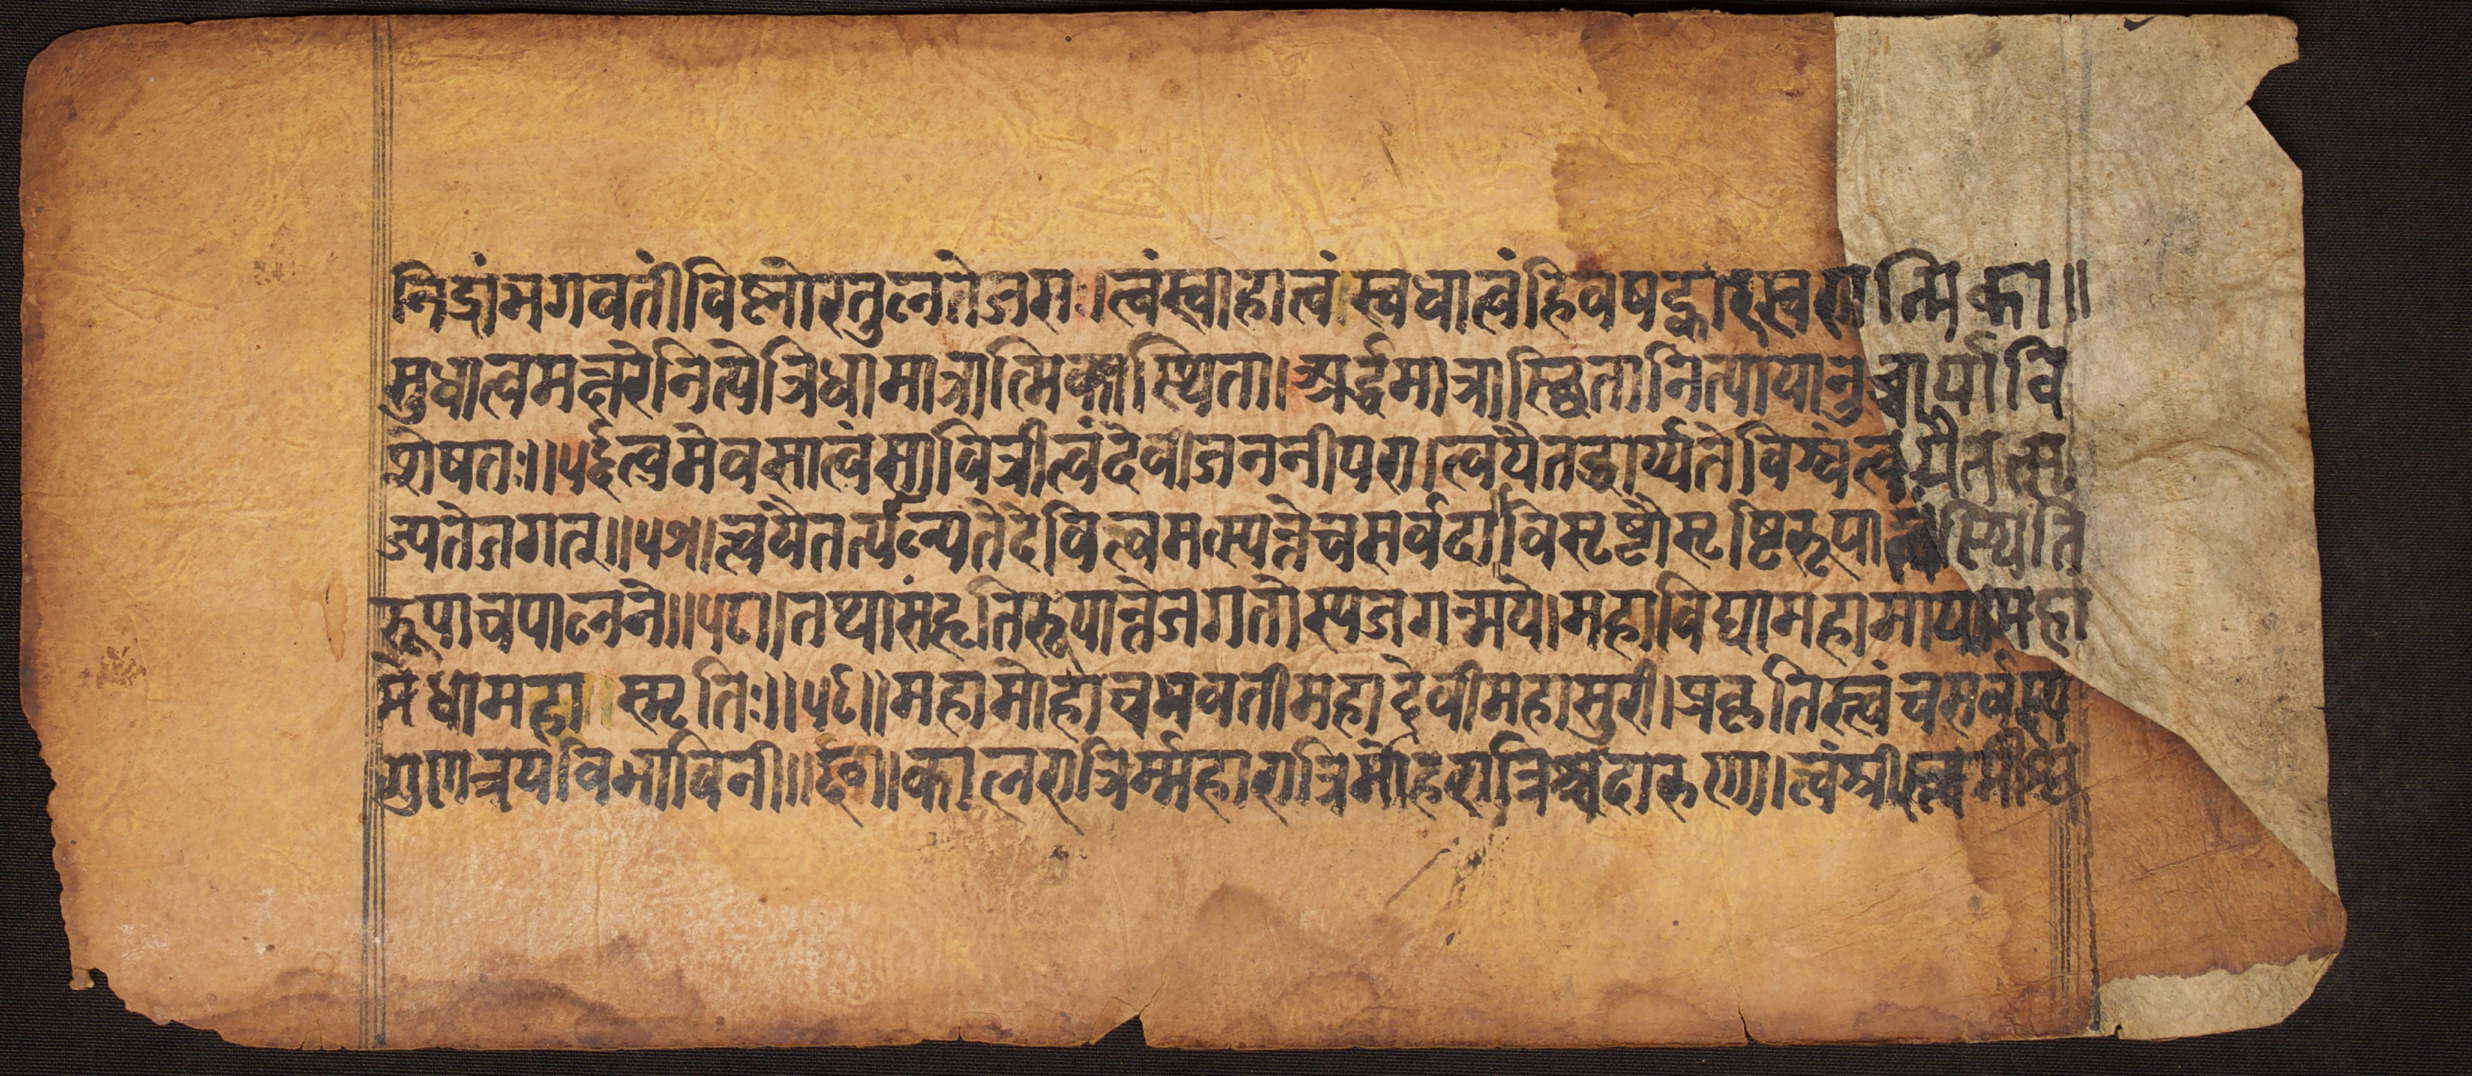 निद्रां भगवतीं विष्णोरतुलतेजसः । त्वं स्वाहा त्वं स्वधा त्वं हि वषट्कारस्वरात्मिका ॥
सुधा त्वमक्षरे नित्ये त्रिधामात्रात्मिका स्थिता । अर्द्धमात्रास्थिता नित्या यानुच्चार्या वि
शेषतः ॥ ५६ त्वमेव सा त्वं सावित्री त्वं देवी जननी परा । त्वयैतद्धार्य्यते विश्वं त्वयैतत्सृ
ज्यते जगत् ॥ ५७ । त्वयैतत्पाल्यते देवि त्वमत्स्यन्ते च सर्वदा । विसृष्टौ सृष्टिरूपा त्वं स्थिति
रूपा च पालने ॥ ५८ ॥ तथा संहृतिरूपान्ते जगतोस्य जगन्मये । महाविद्या महामाया महा
मेधा महास्मृतिः ॥ ५९ ॥ महामोहा च भवती महादेवी महासुरी । प्रकृतिस्त्वं च सर्वस्य
गुणत्रयविभाविनी ॥ ६० ॥ कालरात्रिर्म्महारात्रिर्मोहरात्रिश्च दारुणा । त्वं श्रीस्त्वमीश्व